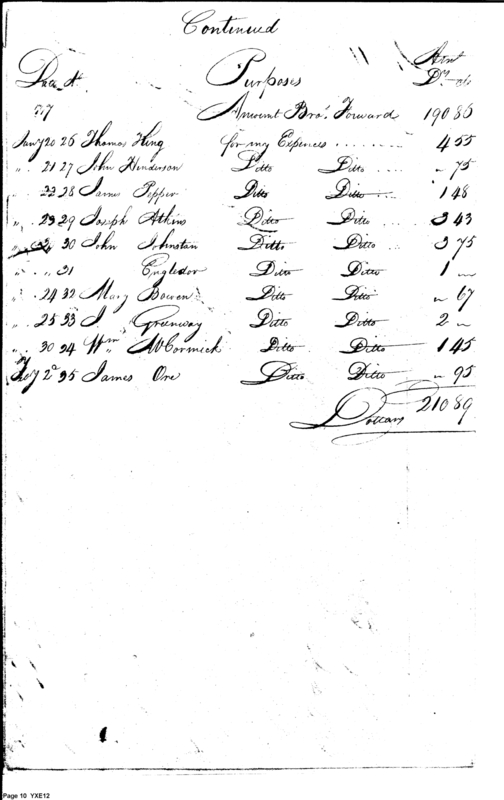 Continued
Purposes Amt
Drs Cts
97 Amount Bro.t Forward 190 86
Jany 20 26 Thomas King for my Expences ......... 4 55
" . 21 27 John Henderson Ditto Ditto .... " 75
22 28 James Pepper Ditto Ditto ... 1 48
" . 23 29 Joseph Atkins Ditto Ditto ... 3 43
30 John Johnstan Ditto Ditto ... 3 75
" . " . 31 Engledor Ditto Ditto 1 "
" . 24 32 Mary Bowen Ditto Ditto " 67
" . 25 33 J Greenway Ditto Ditto 2 "
" . 30 34 Wm McCormick Ditto Ditto 1 45
Feby 2d 35 James Ore Ditto Ditto " 95
Dollars 210 89
Page 10 YXE12